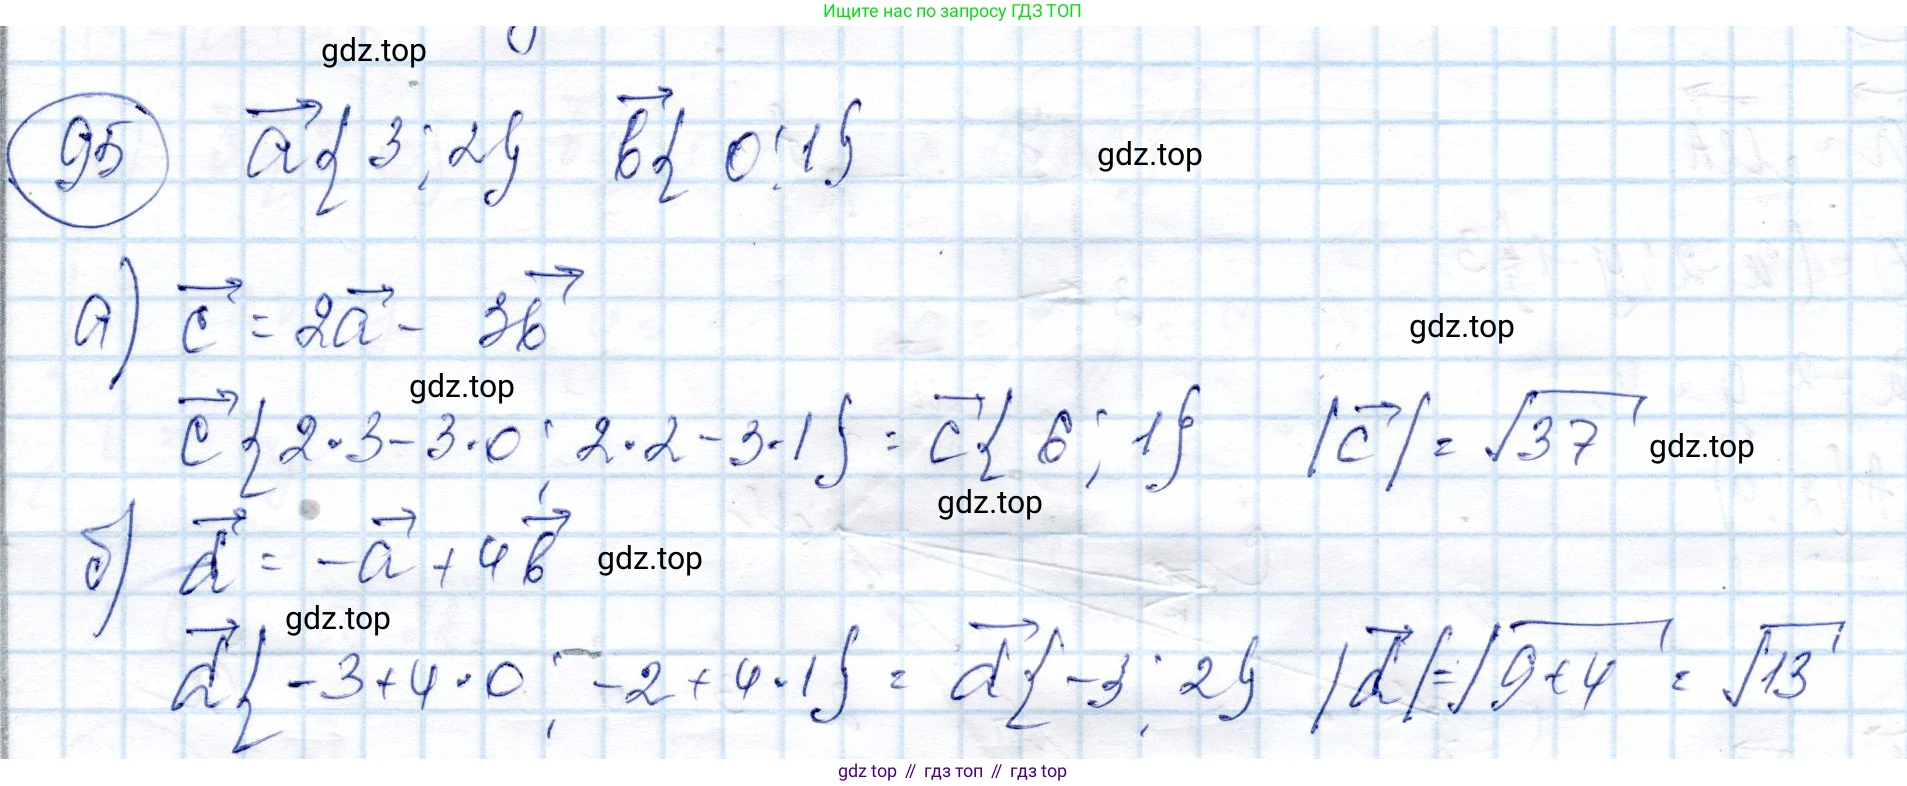 Ищите нас по запросу ГДЗ ТОП
gdz.top
95 a⃗{3; 2} b⃗{0; 1}
gdz.top
а) c⃗ = 2a⃗ - 3b⃗
gdz.top
gdz.top
c⃗{2·3-3·0; 2·2-3·1} = c⃗{6; 1} |c⃗| = √37
gdz.top
gdz.top
б) d⃗ = -a⃗ + 4b⃗
gdz.top
gdz.top
d⃗{-3+4·0; -2+4·1} = d⃗{-3; 2} |d⃗| = √9+4 = √13
gdz top // гдз топ // гдз top